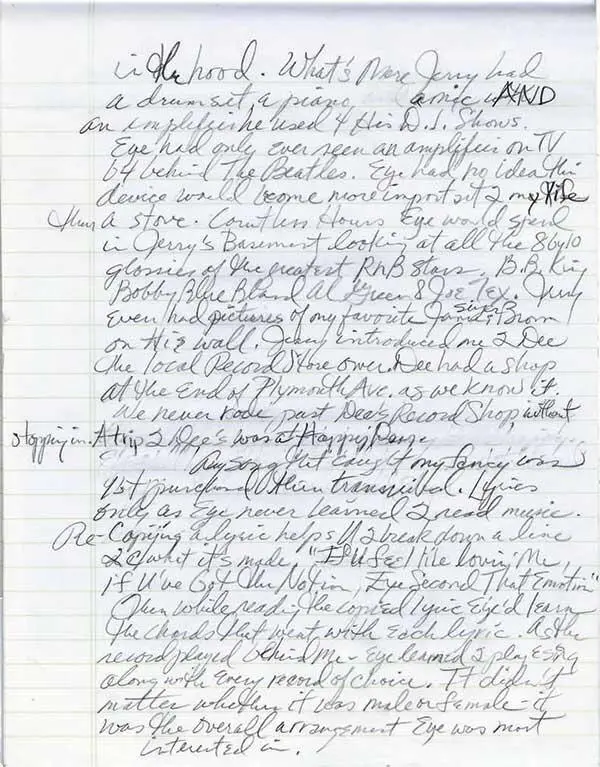 in the hood. What's More Jerry had
a drumset, a piano, a mic AND
an amplifier he used 4 His D.J. Shows.
Eye had only ever seen an amplifier on TV
b4 behind The Beatles. Eye had no idea this
device would become more important 2 my life
than a stove. Countless Hours Eye would spend
in Jerry's Basement looking at all the 8by10
glossies of the greatest RnB Stars. B.B. King
Bobby Blue Bland Al Green & Joe Tex. Jerry
even had pictures of my favorite singer James Brown
on His wall. Jerry introduced me 2 Dee
the local Record Store owner. Dee had a shop
at the end of Plymouth Ave. as we know it
We never rode past Dee's Record Shop, without
stopping in. A trip 2 Dee's was a Happy Day.
Any song that caught my fancy was
1st purchased then transcribed. Lyrics
only as Eye never learned 2 read music.
Re-Copying a lyric helps U 2 break down a line
2 c what it's made, "If U feel like lovin' Me,
if U've Got the Notion, Eye Second That Emotion"
Then while reading the copied lyric Eye'd learn
the chords that went with Each lyric. As the
record played behind Me - Eye learned 2 play & sing
along with Every record of choice. It didn't
matter whether it was male or female - it
was the overall arrangement Eye was most
interested in.